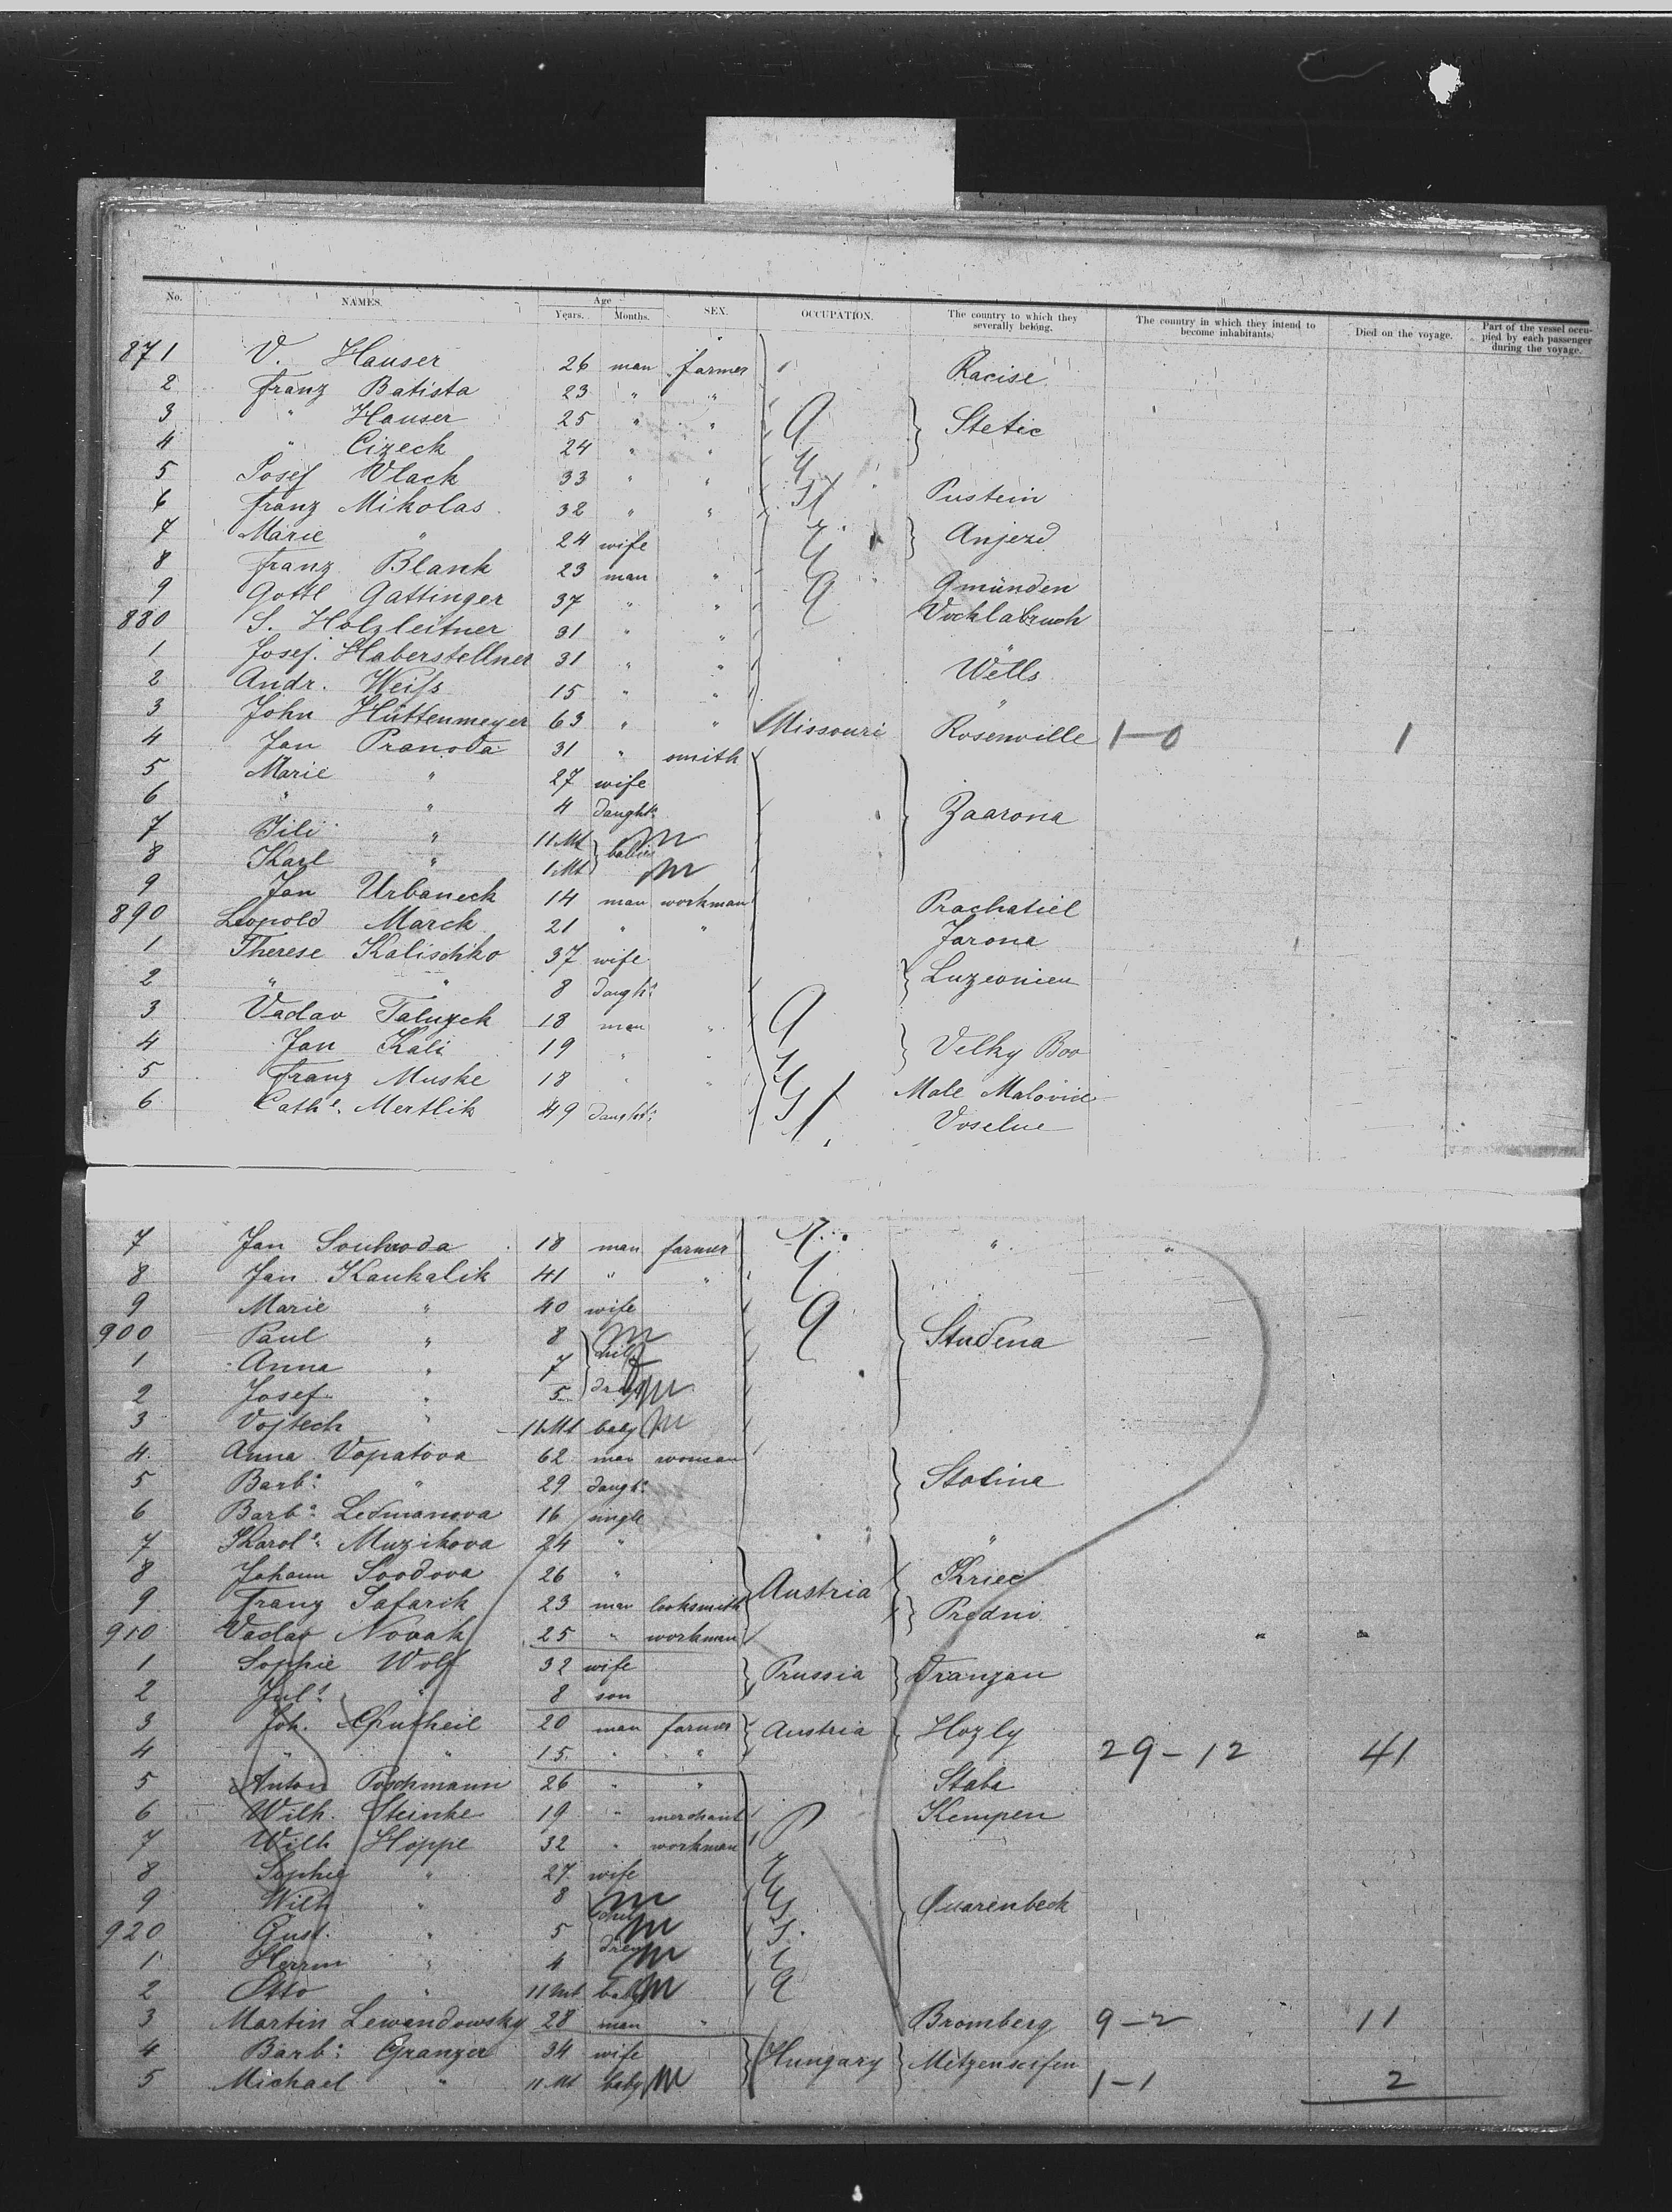 No. NAMES. Age Years. Months. SEX. OCCUPATION. The country to which they severally belong. The country in which they intend to become inhabitants. Died on the voyage. Part of the vessel occupied by each passenger during the voyage.
871 V. Hauser 26 man farmer Racise
2 Franz Batista 23 " "
3 " Hauser 25 " " Stetic
4 " Cizeck 24 " "
5 Josef Wlack 33 " " Pustein
6 Franz Mikolas 32 " "
7 Marie " 24 wife Anjezd
8 Franz Blank 23 man " Gmünden
9 Gottl Gattinger 37 " " Vocklabruch
880 S. Holzleitner 31 " " "
1 Josef Haberstellner 31 " " Wells
2 Andr. Weiss 15 " " "
3 John Hüttenmeyer 63 " " Missouri Rosenville 1-0 1
4 Jan Pranoda 31 " smith
5 Marie " 27 wife
6 " " 4 daught: Zaarona
7 Jili " 11 Mt babies m
8 Karl " 1 Mt m
9 Jan Urbaneck 14 man workman Prachatiel
890 Leopold Marck 21 " " Jarona
1 Therese Kalischko 37 wife Luzeonien
2 " " 8 daugh:
3 Vaclav Taluzek 18 man "
4 Jan Kali 19 " " Velky Boo
5 Franz Muske 18 " " Male Malovice
6 Cathe. Mertlik 49 daught: Voselue
7 Jan Souhroda 18 man farmer " "
8 Jan Kaukalik 41 " "
9 Marie " 40 wife
900 Paul " 8 chil m Studena
1 Anna " 7 f
2 Josef " 5 dren m
3 Vojtech " 11 Mt baby m
4 Anna Vopatova 62 man woman
5 Barb: " 29 daugh: Stotina
6 Barb: Ledmanova 16 single
7 Karole. Muzikova 24 " "
8 Johann Soodova 26 " Austria Kriec
9 Franz Safarik 23 man locksmith Predni
910 Vaclav Novak 25 " workman " "
1 Sophie Wolf 32 wife Prussia Dranzau
2 Jul: " 8 son
3 Joh. 20 man farmer Austria Hozly
4 " " 15 " " 29-12 41
5 Anton Poschmann 26 " " Staba
6 Wilh. Steinke 19 " merchant P Kempen
7 Wilh Hoppe 32 " workman
8 Sophie " 27 wife
9 Wilh " 8 chil m Quarenbeck
920 Gust. " 5 m
1 Herrm " 4 dren m
2 Otto " 11 Mt baby m
3 Martin Lewandowsky 28 man " Bromberg 9-2 11
4 Barb: Granzer 34 wife Hungary Metzenseifen
5 Michael " 11 Mt baby m 1-1 2